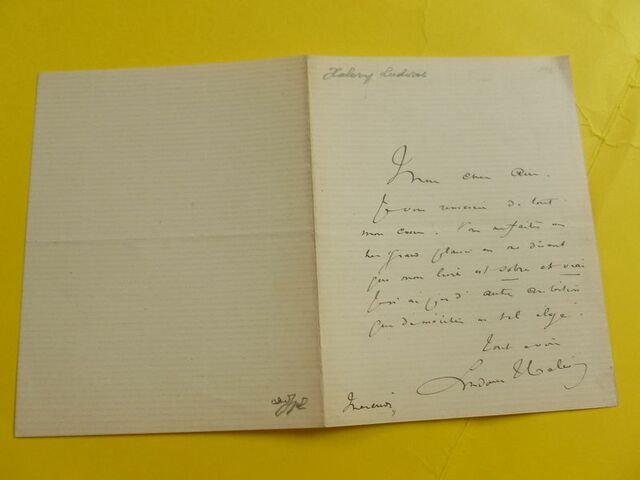 Halévy Ludovic
Mon cher ami.
Je vous remercie de tout
mon cœur. Vous me faites un
très grand plaisir en me disant
que mon livre est sobre et vrai
Je n'ai pas d'autre ambition
que de mériter un tel éloge.
Tout à vous
Ludovic Halévy
Mercredi,